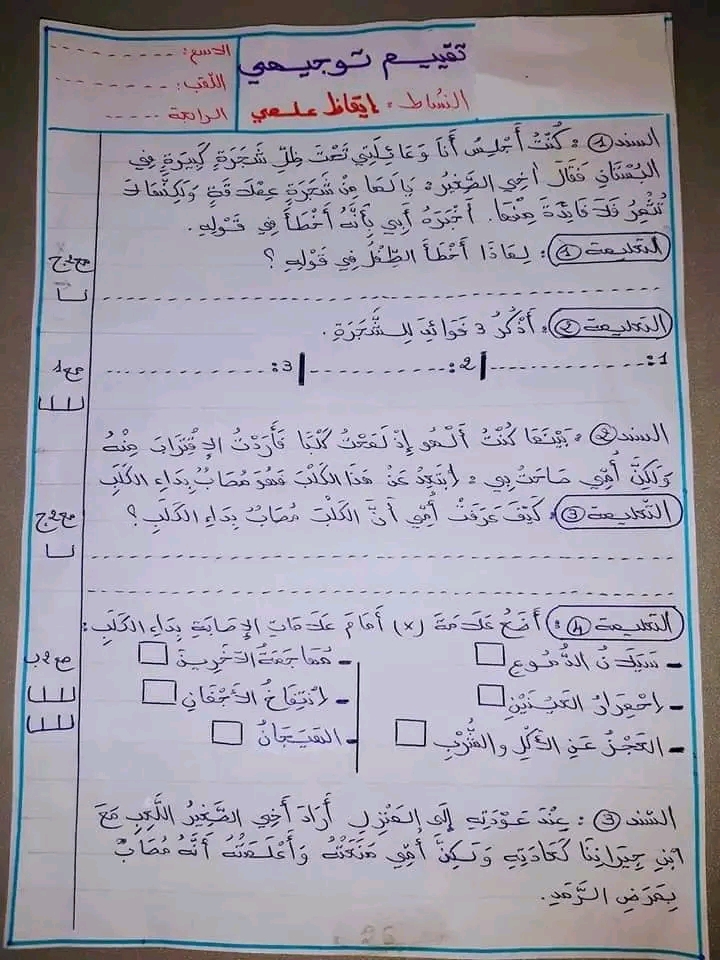 تقييم توجيهي
الاسم: ............
النشاط: إيقاظ علمي
اللقب: ............
الرائجة ............
السند 1: كُنْتُ أَجْلِسُ أَنَا وَعَائِلَتِي تَحْتَ ظِلِّ شَجَرَةٍ كَبِيرَةٍ فِي
البُسْتَانِ فَقَالَ أَخِي الصَّغِيرُ: يَا لَهَا مِنْ شَجَرَةٍ عِمْلَاقَةٍ وَلَكِنَّهَا لَا
تُثْمِرُ فَلَا فَائِدَةَ مِنْهَا. أَخْبَرَهُ أَبِي بِأَنَّهُ أَخْطَأَ فِي قَوْلِهِ.
التعليمة 1: لِمَاذَا أَخْطَأَ الطِّفْلُ فِي قَوْلِهِ؟
مع2ج
التعليمة 2: أَذْكُرُ 3 فَوَائِدَ لِلشَّجَرَةِ.
1: ............ 2: ............ 3: ............
مع1
السند 2: بَيْنَمَا كُنْتُ أَلْهُو إِذْ لَمَحْتُ كَلْبًا فَأَرَدْتُ الِاقْتِرَابَ مِنْهُ
وَلَكِنَّ أُمِّي صَاحَتْ بِي: ابْتَعِدْ عَنْ هَذَا الكَلْبِ فَهُوَ مُصَابٌ بِدَاءِ الكَلَبِ
التعليمة 3: كَيْفَ عَرَفَتْ أُمِّي أَنَّ الكَلْبَ مُصَابٌ بِدَاءِ الكَلَبِ؟
مع2ج
التعليمة 4: أَضَعُ عَلَامَةَ (x) أَمَامَ عَلَامَاتِ الإِصَابَةِ بِدَاءِ الكَلَبِ:
- سَيَلَانُ الدُّمُوعِ - مُهَاجَمَةُ الآخَرِينَ
مع2ب
- احْمِرَارُ العَيْنَيْنِ - انْتِفَاخُ الأَجْفَانِ
- العَجْزُ عَنِ الأَكْلِ وَالشُّرْبِ - الهَيَجَانُ
السند 3: عِنْدَ عَوْدَتِهِ إِلَى المَنْزِلِ أَرَادَ أَخِي الصَّغِيرُ اللَّعِبَ مَعَ
ابْنِ جِيرَانِنَا كَعَادَتِهِ وَلَكِنَّ أُمِّي مَنَعَتْهُ وَأَعْلَمَتْهُ أَنَّهُ مُصَابٌ
بِمَرَضِ الرَّمَدِ.